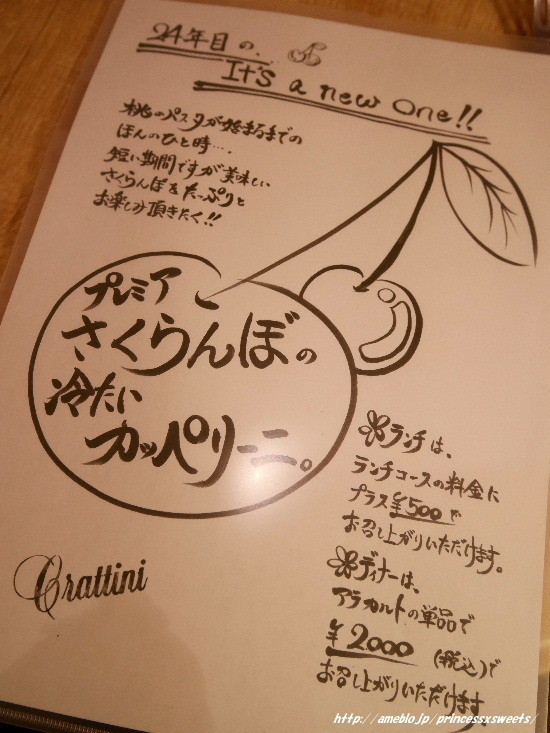 24年目の、
It's a new one!!
桃のパスタが始まるまでの
ほんのひと時…。
短い期間ですが美味しい
さくらんぼをたーぷりと
お楽しみ頂きたく!!
プレミア
さくらんぼの
冷たい
カッペリーニ。
ランチは、
ランチコースの料金に
プラス¥500で
お召し上がりいただけます。
ディナーは、
アラカルトの単品で
¥2000(税込)で
お召し上がりいただけます。
Crattini
http://ameblo.jp/princessxsweets/